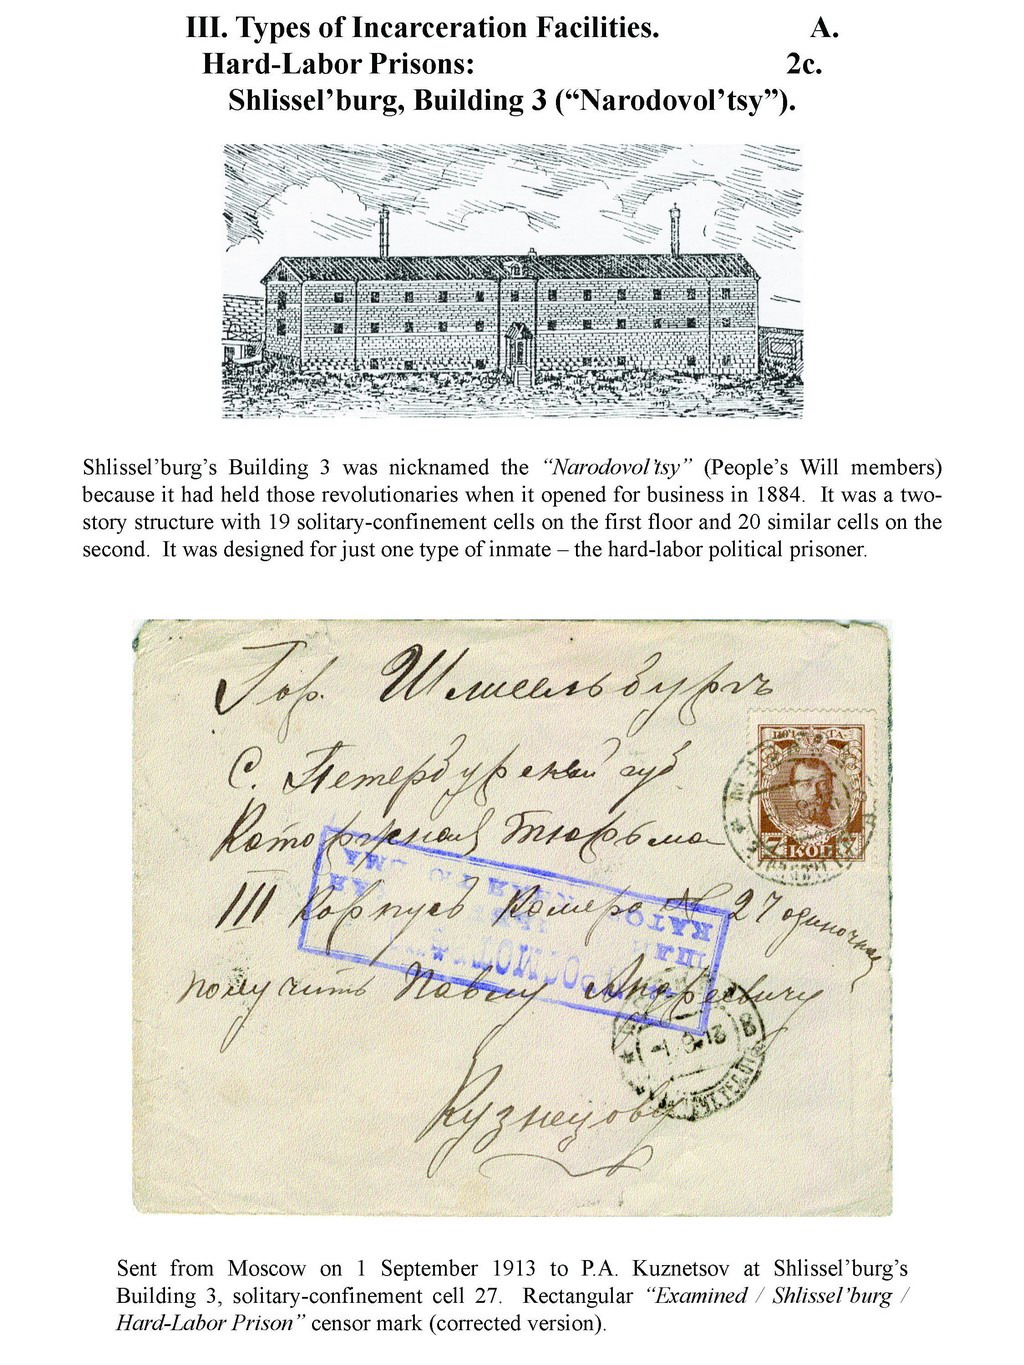 III. Types of Incarceration Facilities. A.
Hard-Labor Prisons: 2c.
Shlissel’burg, Building 3 (“Narodovol’tsy”).
Shlissel’burg’s Building 3 was nicknamed the “Narodovol’tsy” (People’s Will members)
because it had held those revolutionaries when it opened for business in 1884. It was a two-
story structure with 19 solitary-confinement cells on the first floor and 20 similar cells on the
second. It was designed for just one type of inmate – the hard-labor political prisoner.
Гор. Шлиссельбургъ
С. Петербурской губ
ПОЧТА
7 КОП. 7
Каторжная Тюрьма
III Корпусъ Камера № 27 одиночная
получить Павлу Андреевичу
Кузнецову
Sent from Moscow on 1 September 1913 to P.A. Kuznetsov at Shlissel’burg’s
Building 3, solitary-confinement cell 27. Rectangular “Examined / Shlissel’burg /
Hard-Labor Prison” censor mark (corrected version).